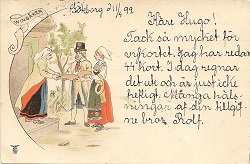 WINGÅKER.
Göteborg 21/4 99
Käre Hugo!
Tack så mycket för
vykortet. Jag har redan
44 kort. I dag regnar
det ute och är just icke
treligt. Många häls-
ningar at din tillgif-
ne bror Rolf.